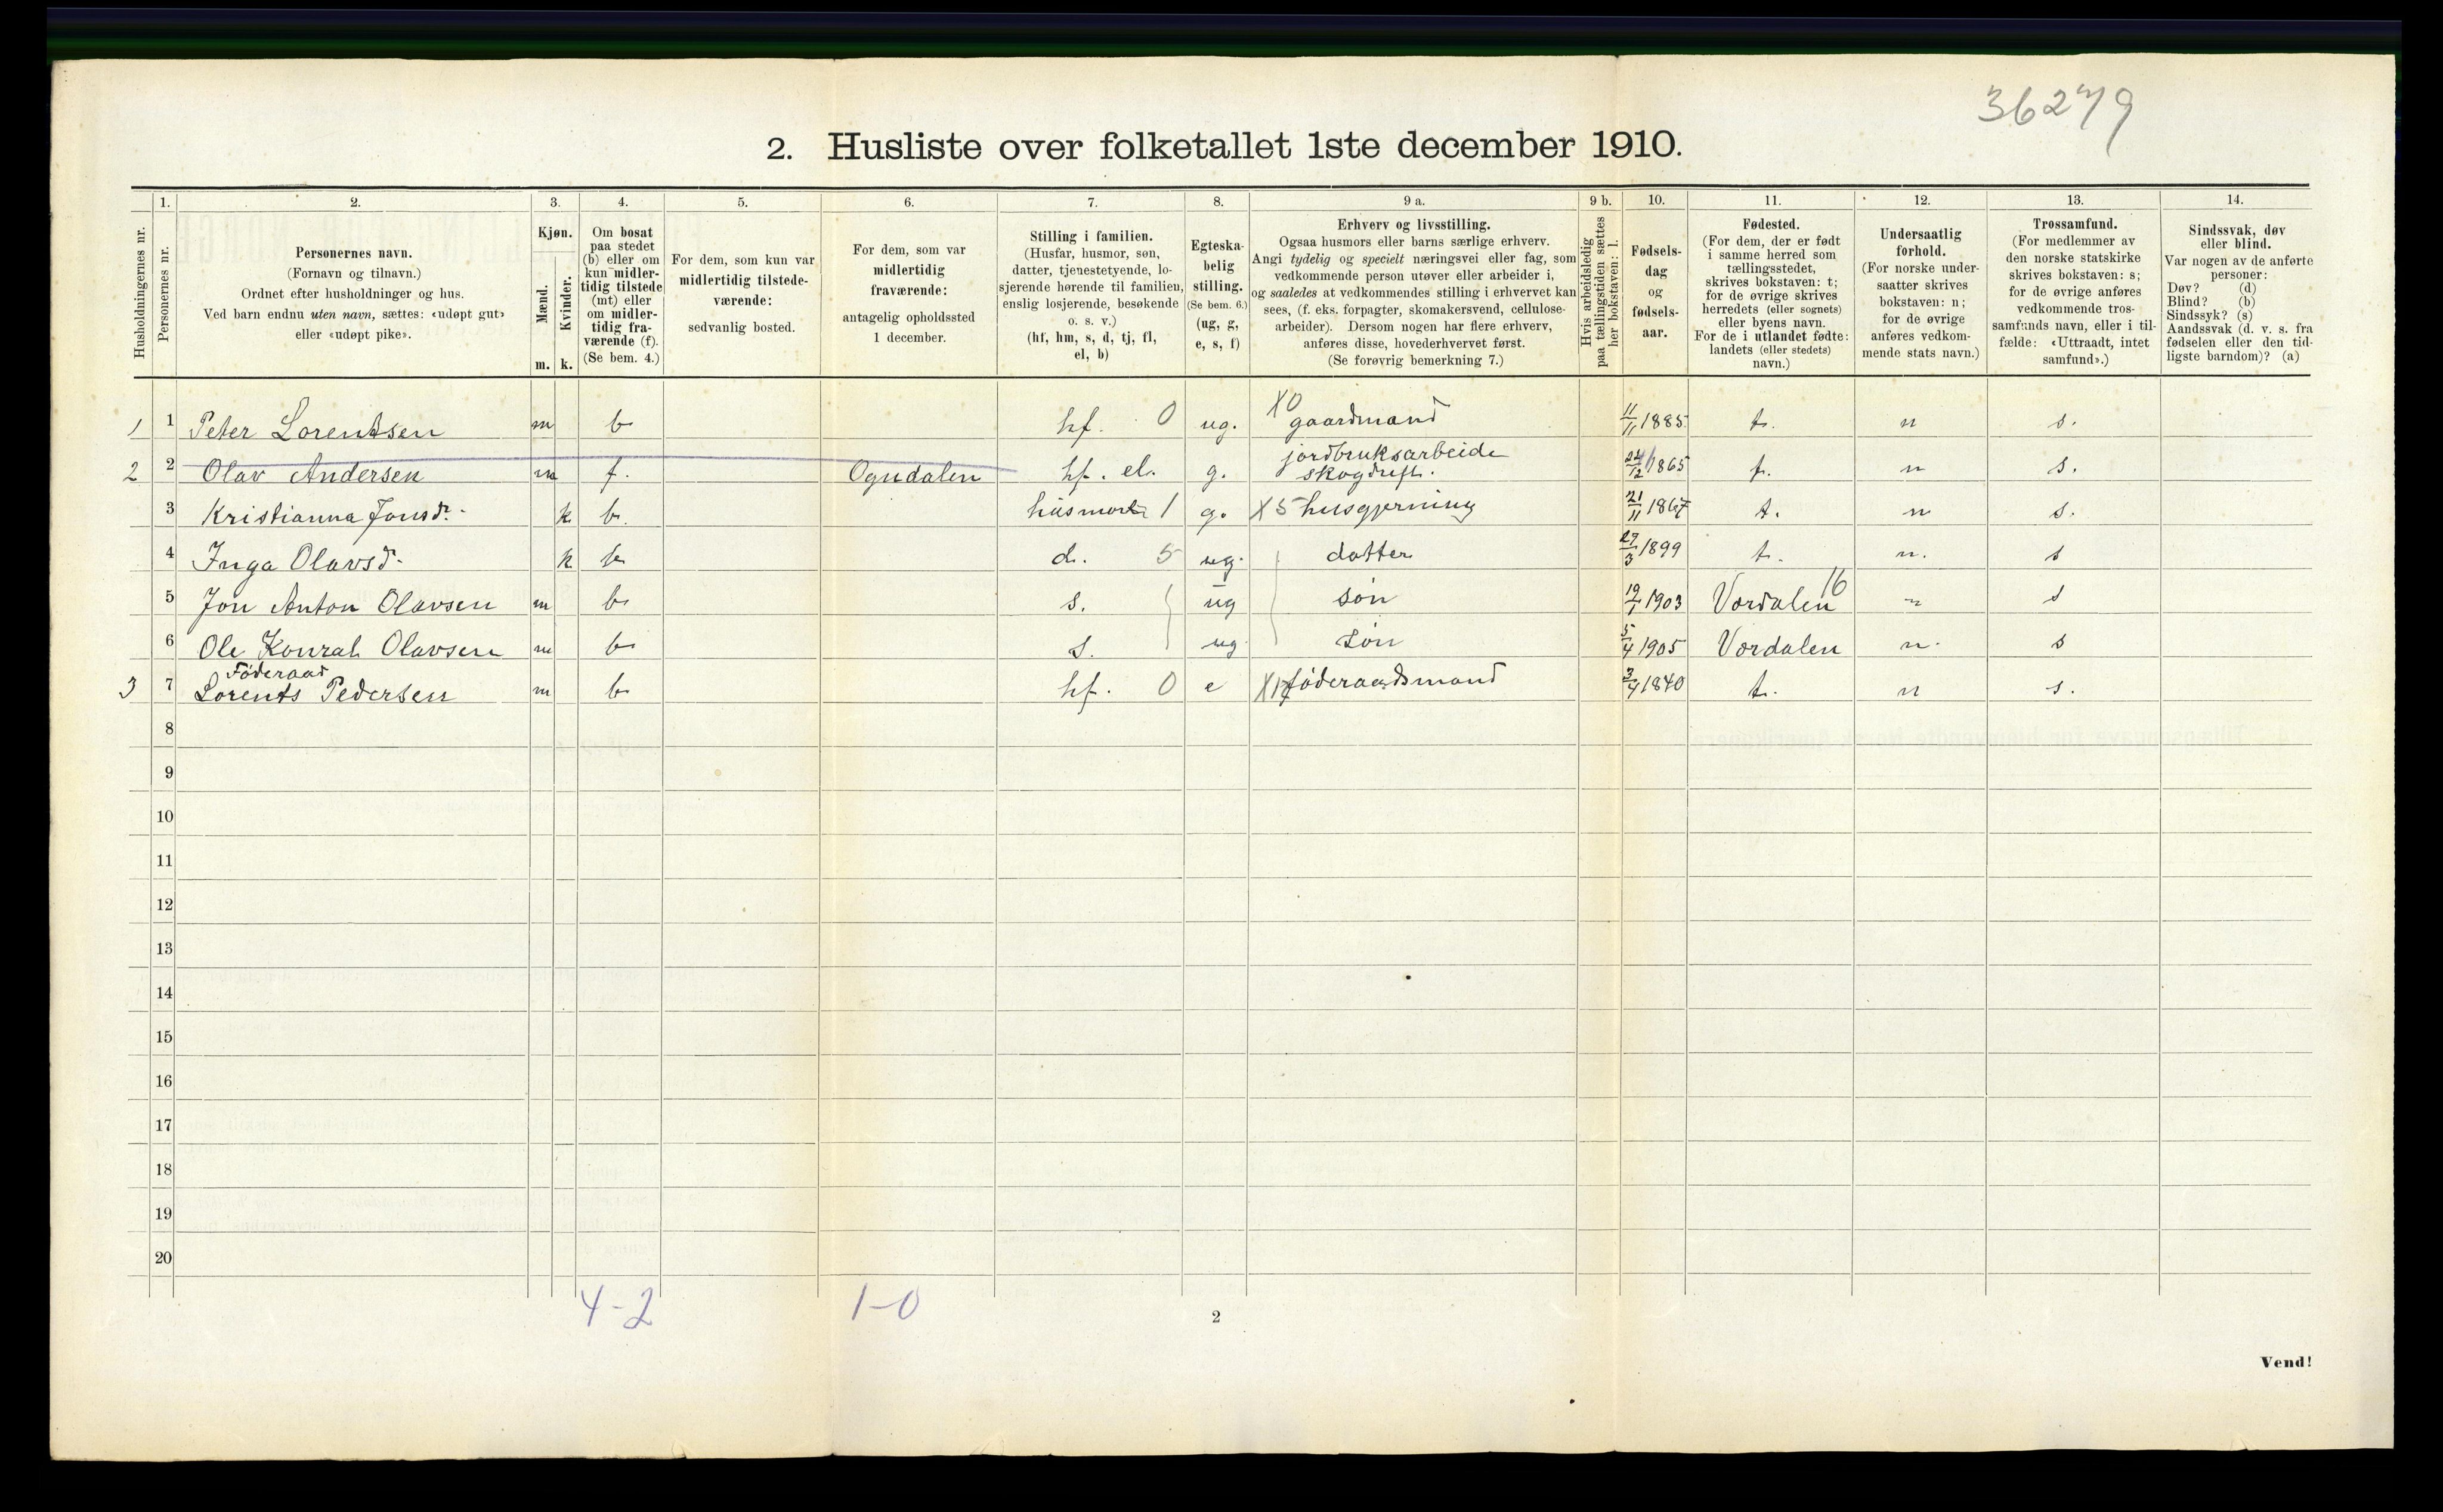 36279
2. Husliste over folketallet 1ste december 1910.
Husholdningernes nr.
1.
Personernes nr.
2.
Personernes navn.
(Fornavn og tilnavn.)
Ordnet efter husholdninger og hus.
Ved barn endnu uten navn, sættes: «udøpt gut»
eller «udøpt pike».
3.
Kjøn.
Mænd.
Kvinder.
m. k.
4.
Om bosat
paa stedet
(b) eller om
kun midler-
tidig tilstede
(mt) eller
om midler-
tidig fra-
værende (f).
(Se bem. 4.)
5.
For dem, som kun var
midlertidig tilstede-
værende:
sedvanlig bosted.
6.
For dem, som var
midlertidig
fraværende:
antagelig opholdssted
1 december.
7.
Stilling i familien.
(Husfar, husmor, søn,
datter, tjenestetyende, lo-
sjerende hørende til familien,
enslig losjerende, besøkende
o. s. v.)
(hf, hm, s, d, tj, fl,
el, b)
8.
Egteska-
belig
stilling.
(Se bem. 6.)
(ug, g,
e, s, f)
9 a.
Erhverv og livsstilling.
Ogsaa husmors eller barns særlige erhverv.
Angi tydelig og specielt næringsvei eller fag, som
vedkommende person utøver eller arbeider i,
og saaledes at vedkommendes stilling i erhvervet kan
sees, (f. eks. forpagter, skomakersvend, cellulose-
arbeider). Dersom nogen har flere erhverv,
anføres disse, hovederhvervet først.
(Se forøvrig bemerkning 7.)
9 b.
Hvis arbeidsledig
paa tællingstiden sættes
her bokstaven: l.
10.
Fødsels-
dag
og
fødsels-
aar.
11.
Fødested.
(For dem, der er født
i samme herred som
tællingsstedet,
skrives bokstaven: t;
for de øvrige skrives
herredets (eller sognets)
eller byens navn.
For de i utlandet fødte:
landets (eller stedets)
navn.)
12.
Undersaatlig
forhold.
(For norske under-
saatter skrives
bokstaven: n;
for de øvrige
anføres vedkom-
mende stats navn.)
13.
Trossamfund.
(For medlemmer av
den norske statskirke
skrives bokstaven: s;
for de øvrige anføres
vedkommende tros-
samfunds navn, eller i til-
fælde: «Uttraadt, intet
samfund».)
14.
Sindssvak, døv
eller blind.
Var nogen av de anførte
personer:
Døv? (d)
Blind? (b)
Sindssyk? (s)
Aandssvak (d. v. s. fra
fødselen eller den tid-
ligste barndom)? (a)
1 1 Peter Lorentsen m b hf. 0 ug. X0 gaardmand 11/11 1885 t. n s.
2 2 Olav Andersen m f. Ogndalen hf. el. g. jordbruksarbeide skogdrift. 24/12 1865 t. n s.
3 Kristianna Jonsd. k b. husmor 1 g. X5 husgjerning 21/11 1867 t. n s.
4 Inga Olavsd. k b d. 5 ug. datter 29/3 1899 t. n. s
5 Jon Anton Olavsen m b s. ug søn 19/1 1903 Værdalen 16 n s
6 Ole Konrad Olavsen m b s. ug. søn 5/4 1905 Værdalen n. s
3 7 Föderaad
Lorents Pedersen m b hf. 0 e föderaadsmand 3/4 1840 t. n s.
8
9
10
11
12
13
14
15
16
17
18
19
20
4-2 1-0
2
Vend!